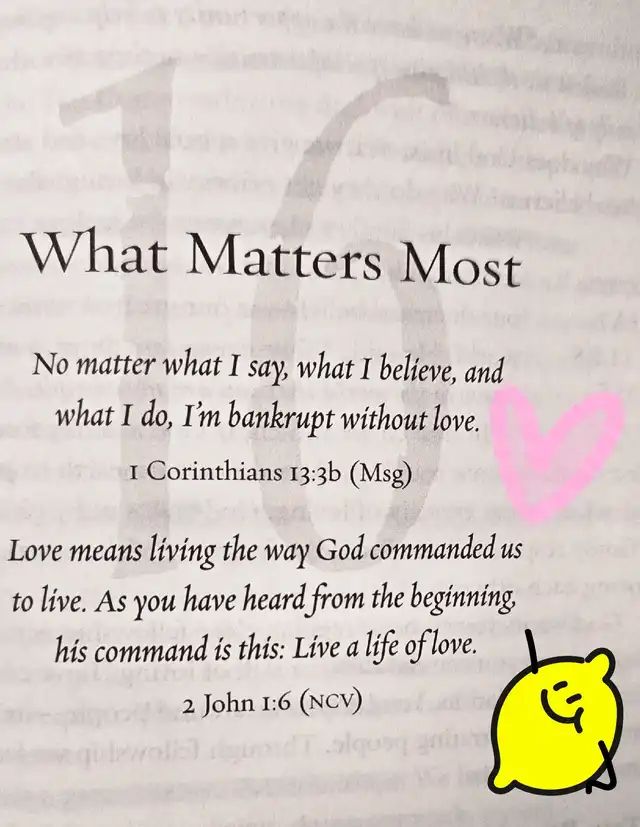 16
What Matters Most
No matter what I say, what I believe, and
what I do, I'm bankrupt without love.
1 Corinthians 13:3b (Msg)
Love means living the way God commanded us
to live. As you have heard from the beginning,
his command is this: Live a life of love.
2 John 1:6 (NCV)